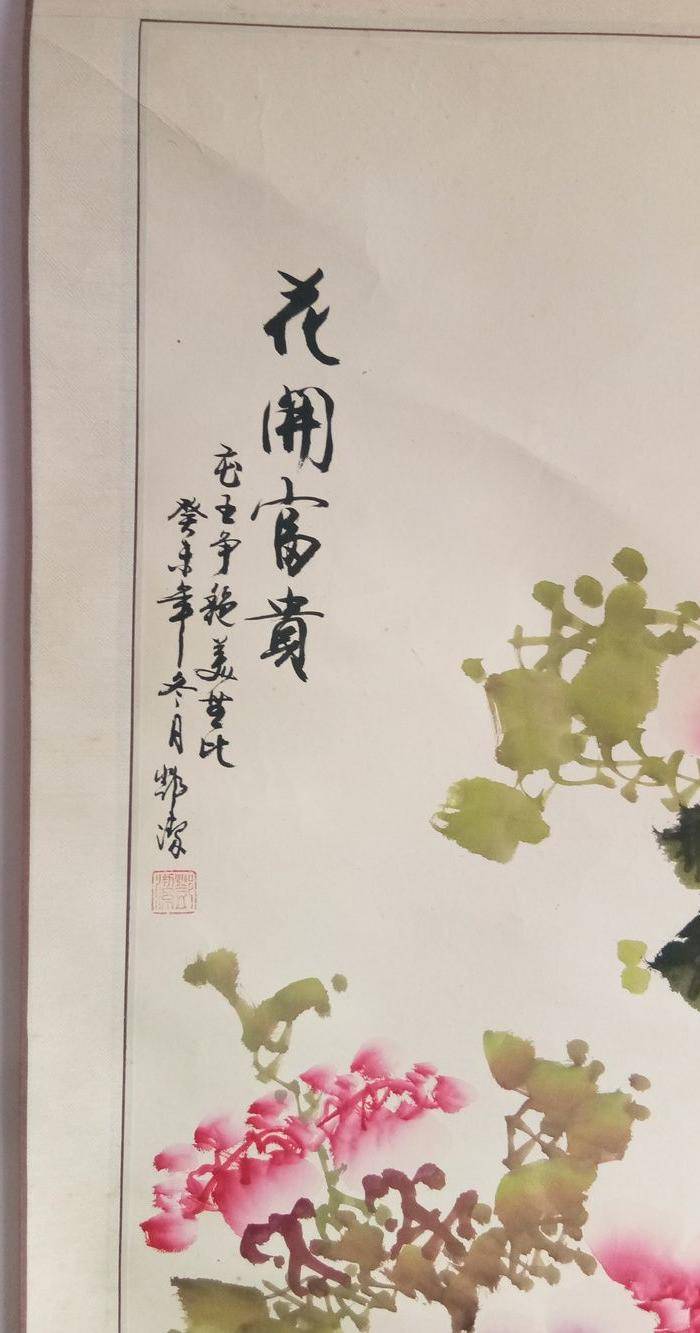 花開富貴
花王争艷美無比
癸未年冬月鄧潔